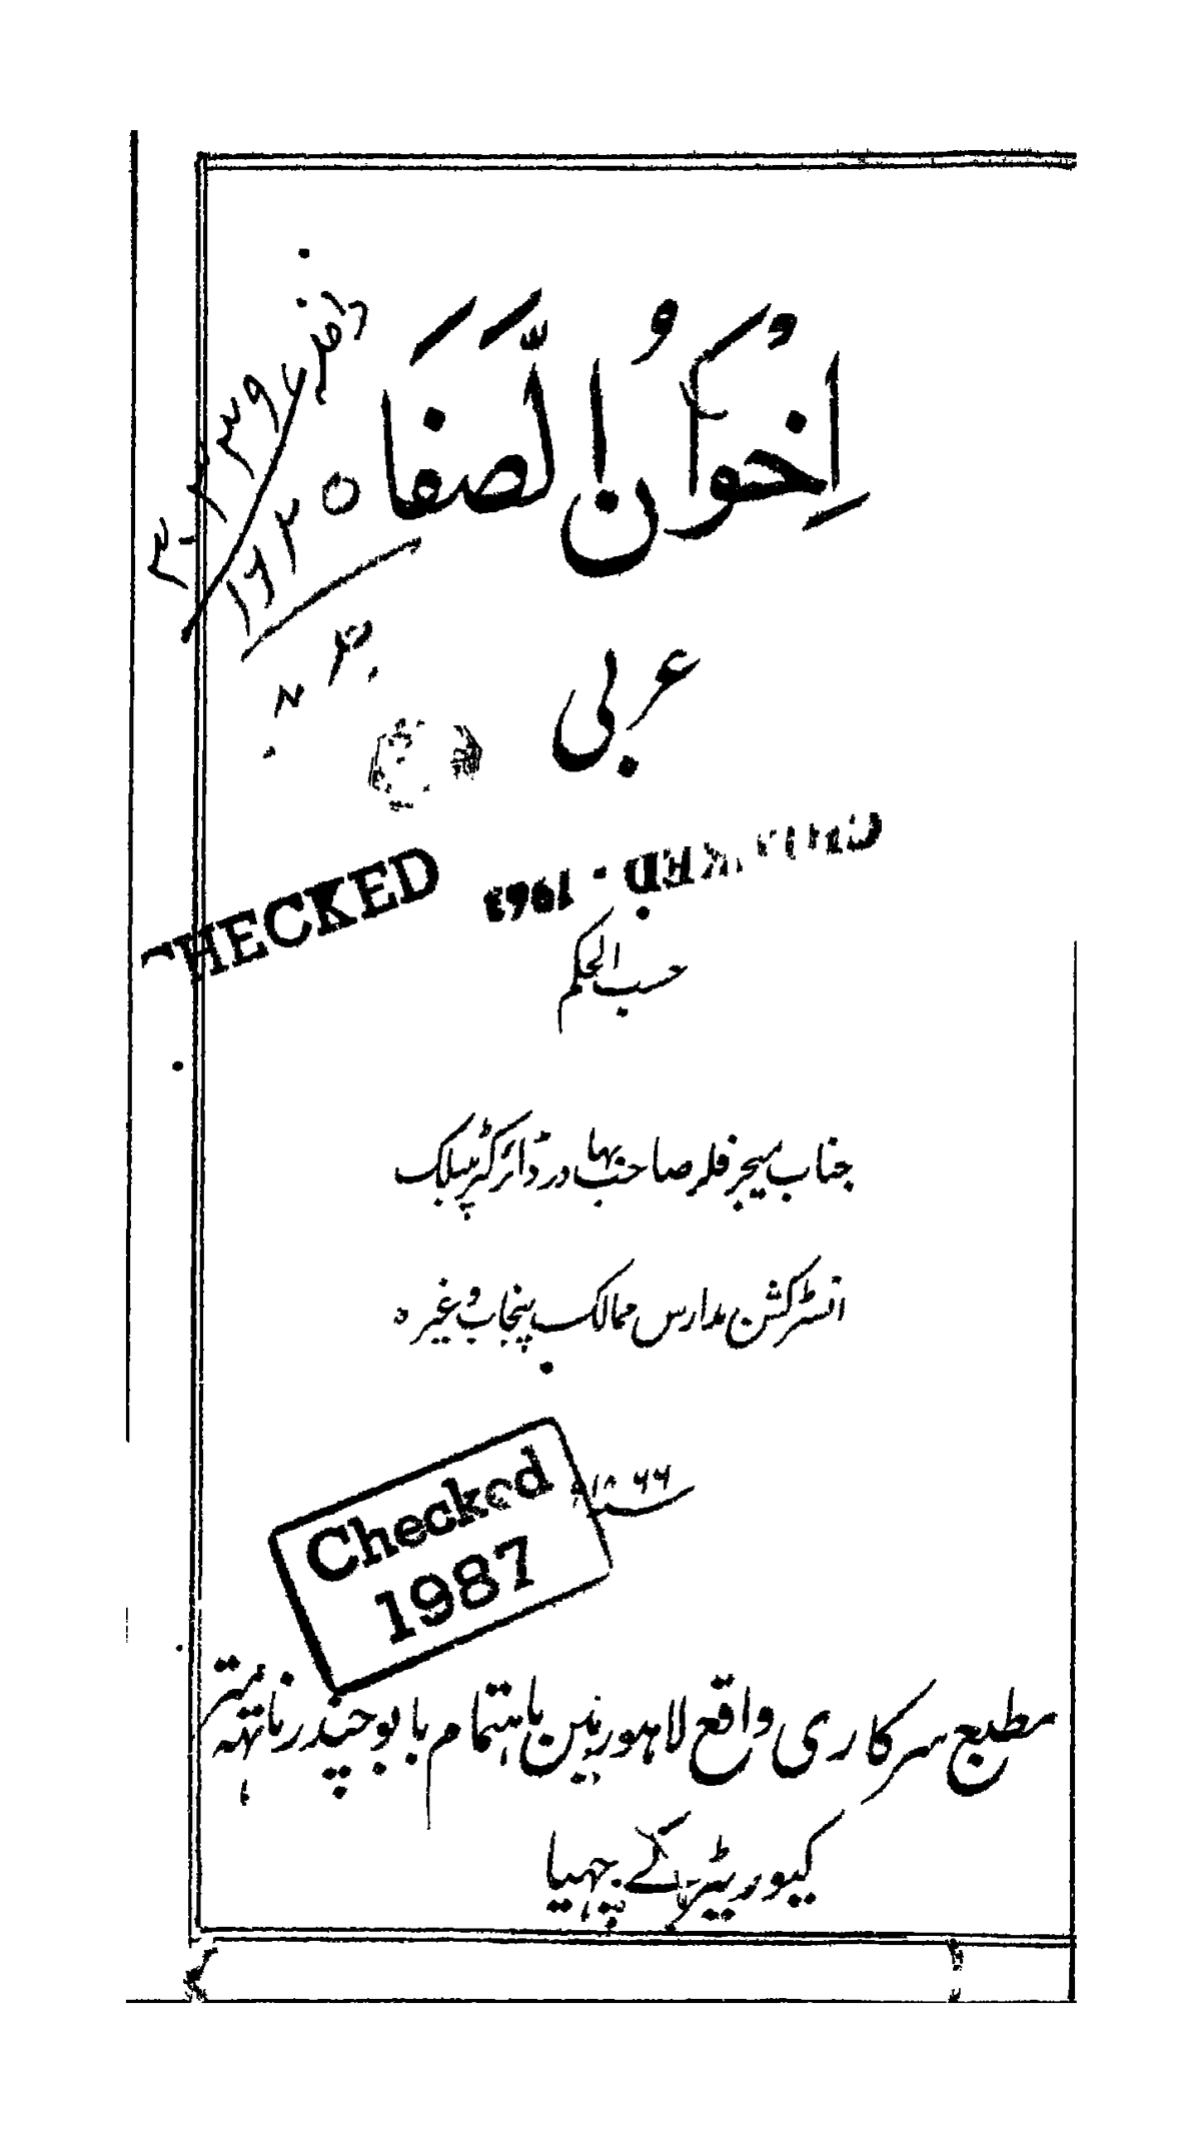 اِخْوَانُ الصَّفَا
عربی
CHECKED
CHECKED - 1963
حسب الحکم
جناب میجر فلر صاحب بہادر ڈائرکٹر پبلک
انسٹرکشن مدارس ممالک پنجاب وغیرہ
سنہ ۱۸۶۶ء
Checked
1987
مطبع سرکاری واقع لاہور مین باہتمام بابو چندر ناتھہ متر
کیوریٹر کے چہپا